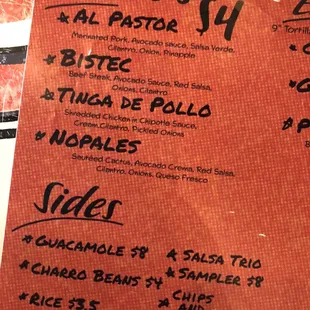 $4
Al Pastor
Marinated Pork, Avocado sauce, Salsa Verde,
Cilantro, Onion, Pineapple
Bistec
Beef Steak, Avocado Sauce, Red Salsa,
Onions, Cilantro
Tinga de Pollo
Shredded Chicken in Chipotle Sauce,
Cream, Cilantro, Pickled Onions
Nopales
Sautéed Cactus, Avocado Crema, Red Salsa,
Cilantro, Onions, Queso Fresco
Sides
Guacamole $8
Charro Beans $4
Rice $3.5
Salsa Trio
Sampler $8
Chips
and
9" Tortill